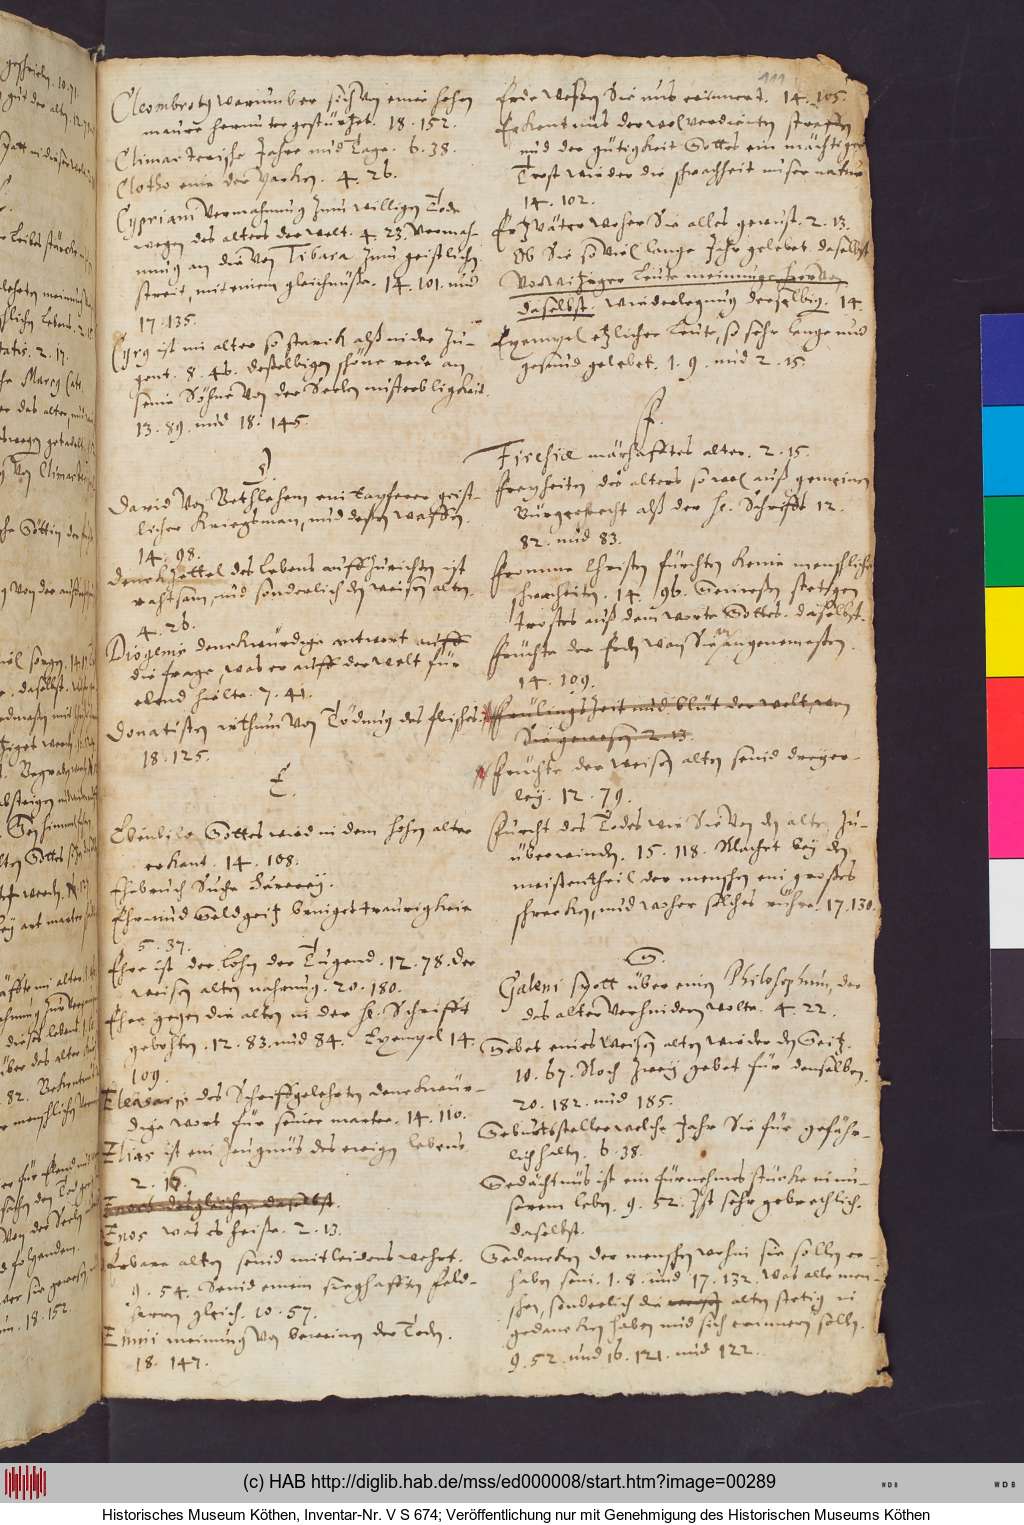 111
Cleombrotus warumb er sich von einer hohen
mauren herunter gestürzet. 18. 152.
Climacterische Jahre und Tage. 6. 38.
Clotho eine der Parken. 4. 26.
Cypriani Vermahnung zum willigen Tode
wegen des alters der welt. 4. 23. Vermah-
nung an die von Tibara zum geistlichen
streit, mit einem gleichnüße. 14. 101. und
17. 135.
Cyrus ist im alter so starck alß in der Ju-
gent. 8. 46. desselbigen schöne rede an
seine Söhne von der Seelen unsterbligkeit.
13. 89. und 18. 145.
D.
David von Bethlehem ein tapferer geist-
licher Kriegsman, und deßen waffen.
14. 98.
Denckzettel des lebens auffzurichten ist
rahtsam, und sonderlich den weisen alten.
4. 26.
Diogenis denckwürdige antwort auff
die frage, was er auff der welt für
elend hielte. 7. 41.
Donatisten irthum von Tödtung des fleisches.
18. 125.
E.
Ebenbild Gottes wird in dem hohen alter
erkant. 14. 108.
Ehebruch Suche Hurerey.
Ehr und Geldgeitz bringet traurigkeit
5. 37.
Ehre ist der lohn der Tugend. 12. 78. der
weisen alten nahrung. 20. 180.
Ehre gegen die alten in der H. Schrifft
gebohten. 12. 83. und 84. Exempel 14.
109.
Eleasari des Schrifftgelehrten denckwür-
dige wort für seiner marter. 14. 110.
Elias ist ein Zeugnüs des ewigen lebens
2. 16.
Enoch desgleichen daselbst.
Enos was es heiße. 2. 13.
Erbare alten seind mitleidens wehrt.
9. 54. Seind einem sieghafften feld-
herren gleich. 10. 57.
Ennii meinung von beweinen der Toden.
18. 147.
Erde weßen Sie uns erinnert. 14. 105.
Erkentnüs der wol verdienten straffen
und der gütigkeit Gottes ein mächtiger
Trost wieder die schwachheit unser natur
14. 102.
Ertzväter woher Sie alles gewust. 2. 13.
Ob Sie so viel lange Jahr gelebet daselbst
Vorwitziger Leute meinunge hiervon
daselbst. Wiederlegung derselbigen. 14.
Exempel etzlicher Leute, so sehr lange und
gesund gelebet. 1. 9. und 2. 15.
F.
Fischiæ märhafftes alter. 2. 15.
Freyheiten des alters so wol auß gemeinen
Bürgerrecht alß der H. Schrifft 12.
82. und 83.
Fromme Christen fürchten keine menschliche
schwacheiten. 14. 96. Genießen stetigen
trostes auß dem worte Gottes. daselbst.
Früchte der Erden was Sie am angenemesten.
14. 109.
Frülings Zeit und blüt der welt, wen
Sie gewesen 2. 13.
Früchte der weisen alten seind dreyer-
ley. 12. 79.
Furcht des Todes wie Sie von den alten zu-
überwinden. 15. 118. Machet bey den
meistentheil der menschen ein großes
schrecken, und woher solches rühre. 17. 130.
G.
Galeni spott über einen Philosophum, der
das alter verhindern wolte. 4. 22.
Gebet eines weisen alten wieder den Geitz.
10. 67. Noch zwey gebet für denselben.
20. 182. und 185.
Geburtsteller welche Jahr Sie für gefähr-
lich halten. 6. 38.
Gedächtnüs ist ein fürnehmes stücke in un-
serem leben. 9. 52. Ist sehr gebrechlich.
daselbst.
Gedancken der menschen wohin sie sollen er-
haben sein. 1. 8. und 17. 132. Was alle men-
schen, sonderlich die weisen alten stetig in
gedancken haben und sich erinnern sollen.
9. 52. und 16. 121. und 122.
(c) HAB http://diglib.hab.de/mss/ed000008/start.htm?image=00289
WDB
WDB
Historisches Museum Köthen, Inventar-Nr. V S 674; Veröffentlichung nur mit Genehmigung des Historischen Museums Köthen